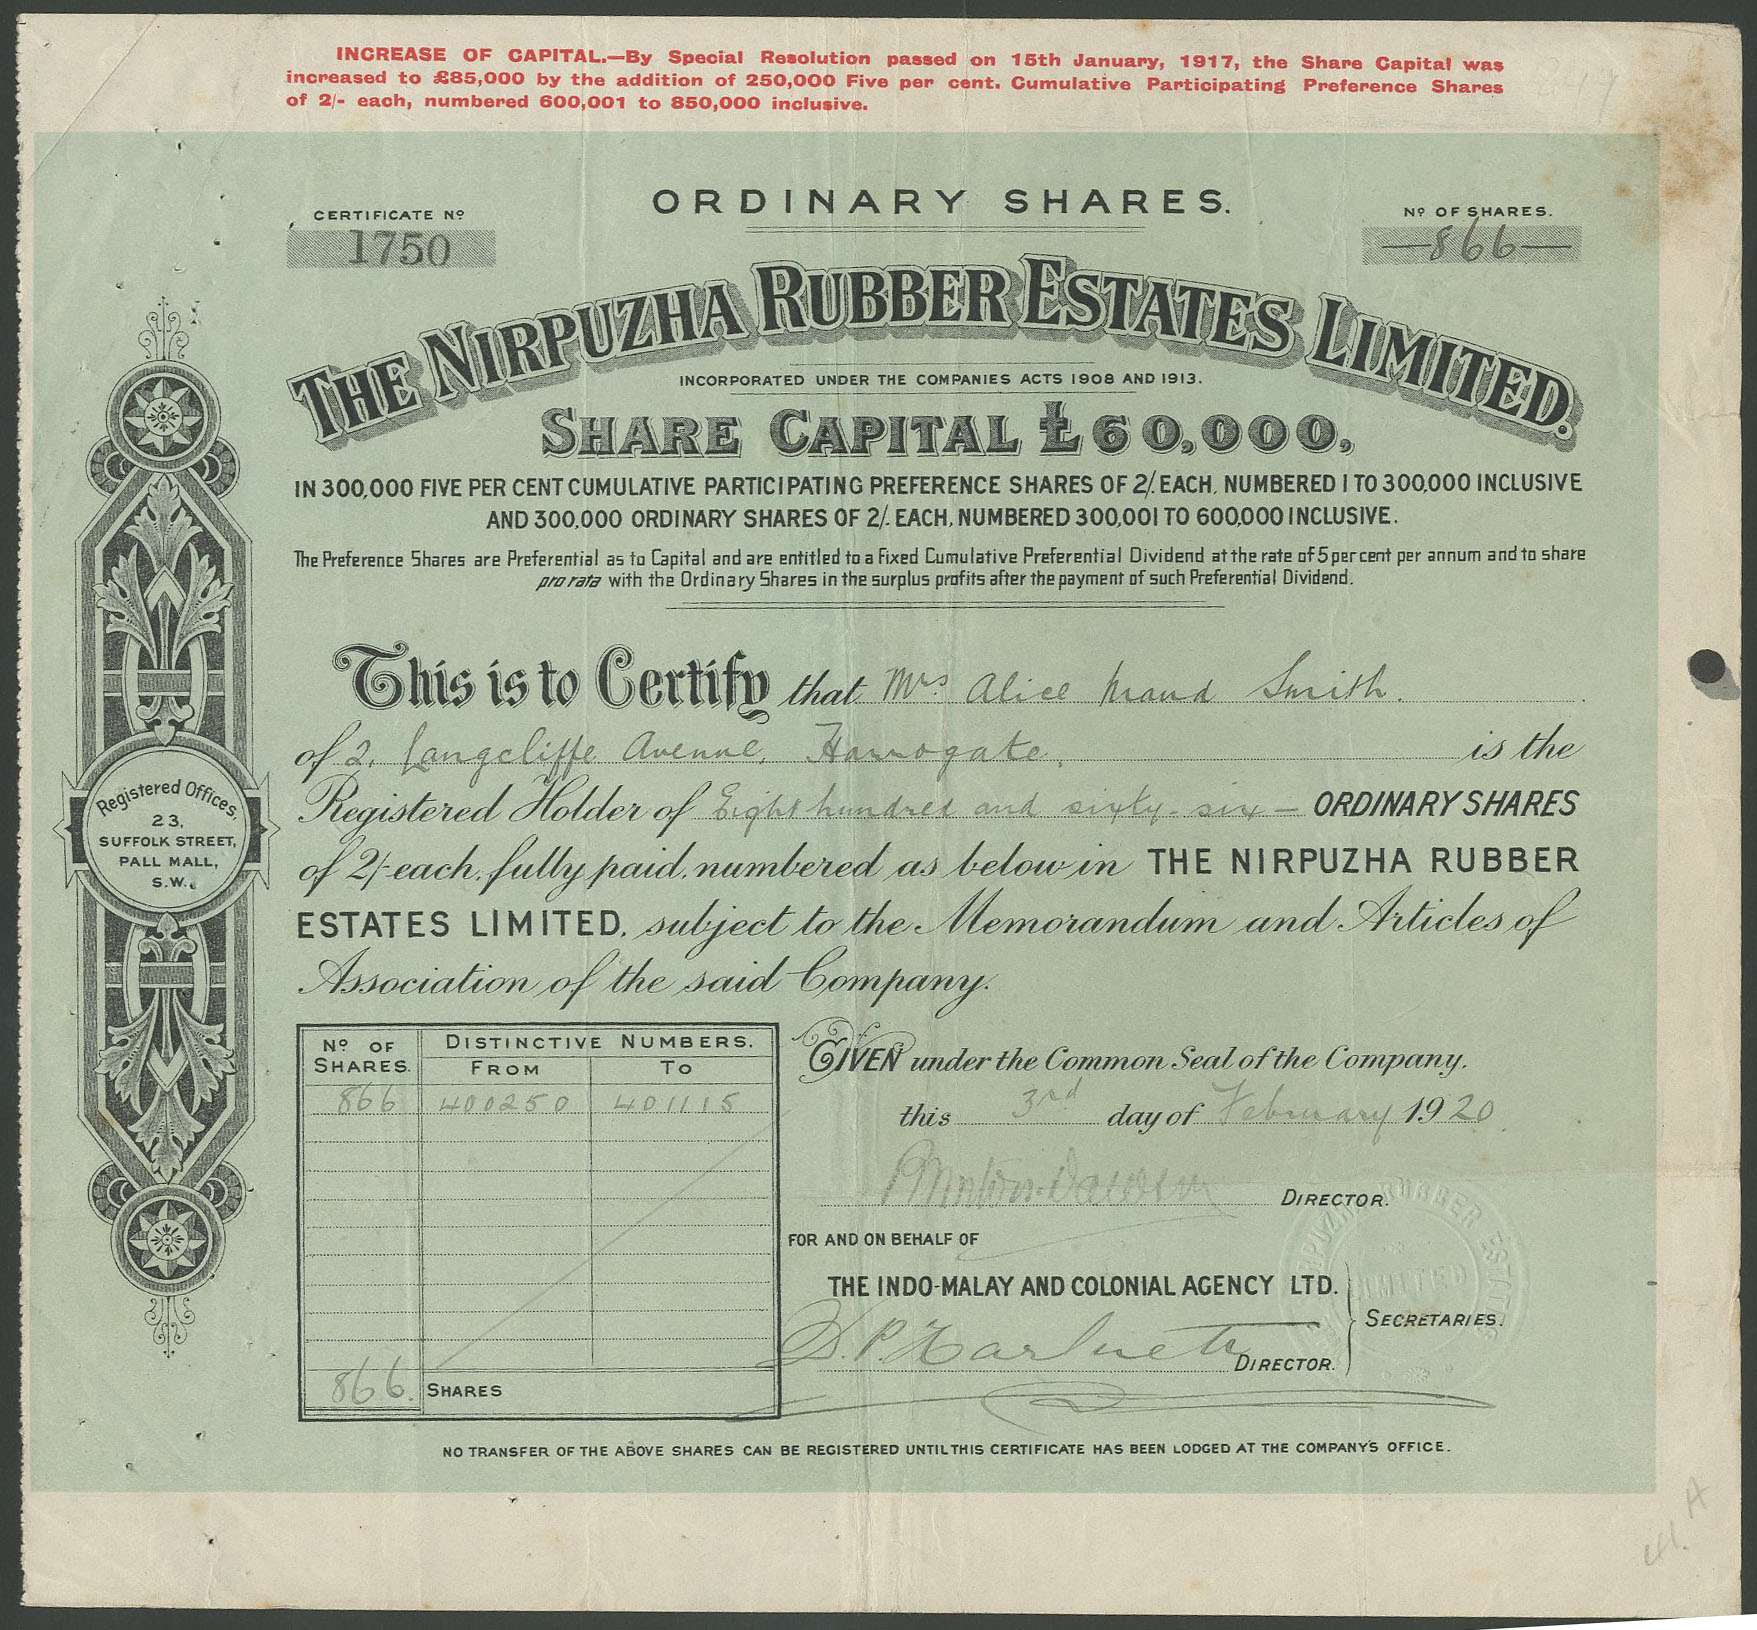 INCREASE OF CAPITAL.—By Special Resolution passed on 15th January, 1917, the Share Capital was
increased to £85,000 by the addition of 250,000 Five per cent. Cumulative Participating Preference Shares
of 2/- each, numbered 600,001 to 850,000 inclusive.
ORDINARY SHARES.
CERTIFICATE No
1750
No OF SHARES.
—866—
THE NIRPUZHA RUBBER ESTATES LIMITED.
INCORPORATED UNDER THE COMPANIES ACTS 1908 AND 1913.
SHARE CAPITAL £60,000,
IN 300,000 FIVE PER CENT CUMULATIVE PARTICIPATING PREFERENCE SHARES OF 2/. EACH, NUMBERED 1 TO 300,000 INCLUSIVE
AND 300,000 ORDINARY SHARES OF 2/. EACH, NUMBERED 300,001 TO 600,000 INCLUSIVE.
The Preference Shares are Preferential as to Capital and are entitled to a Fixed Cumulative Preferential Dividend at the rate of 5 per cent per annum and to share
pro rata with the Ordinary Shares in the surplus profits after the payment of such Preferential Dividend.
This is to Certify that Mrs. Alice Maud Smith.
of 2, Langcliffe Avenue, Harrogate, is the
Registered Holder of Eight hundred and sixty-six — ORDINARY SHARES
of 2/- each, fully paid, numbered as below in THE NIRPUZHA RUBBER
ESTATES LIMITED, subject to the Memorandum and Articles of
Association of the said Company.
Registered Offices,
23,
SUFFOLK STREET,
PALL MALL,
S.W.
No OF SHARES.
DISTINCTIVE NUMBERS.
FROM TO
866 400250 401115
866. SHARES
GIVEN under the Common Seal of the Company.
this 3rd day of February 1920
DIRECTOR.
FOR AND ON BEHALF OF
THE INDO-MALAY AND COLONIAL AGENCY LTD.
SECRETARIES.
DIRECTOR.
NIRPUZHA RUBBER ESTATES
LIMITED
NO TRANSFER OF THE ABOVE SHARES CAN BE REGISTERED UNTIL THIS CERTIFICATE HAS BEEN LODGED AT THE COMPANY'S OFFICE.